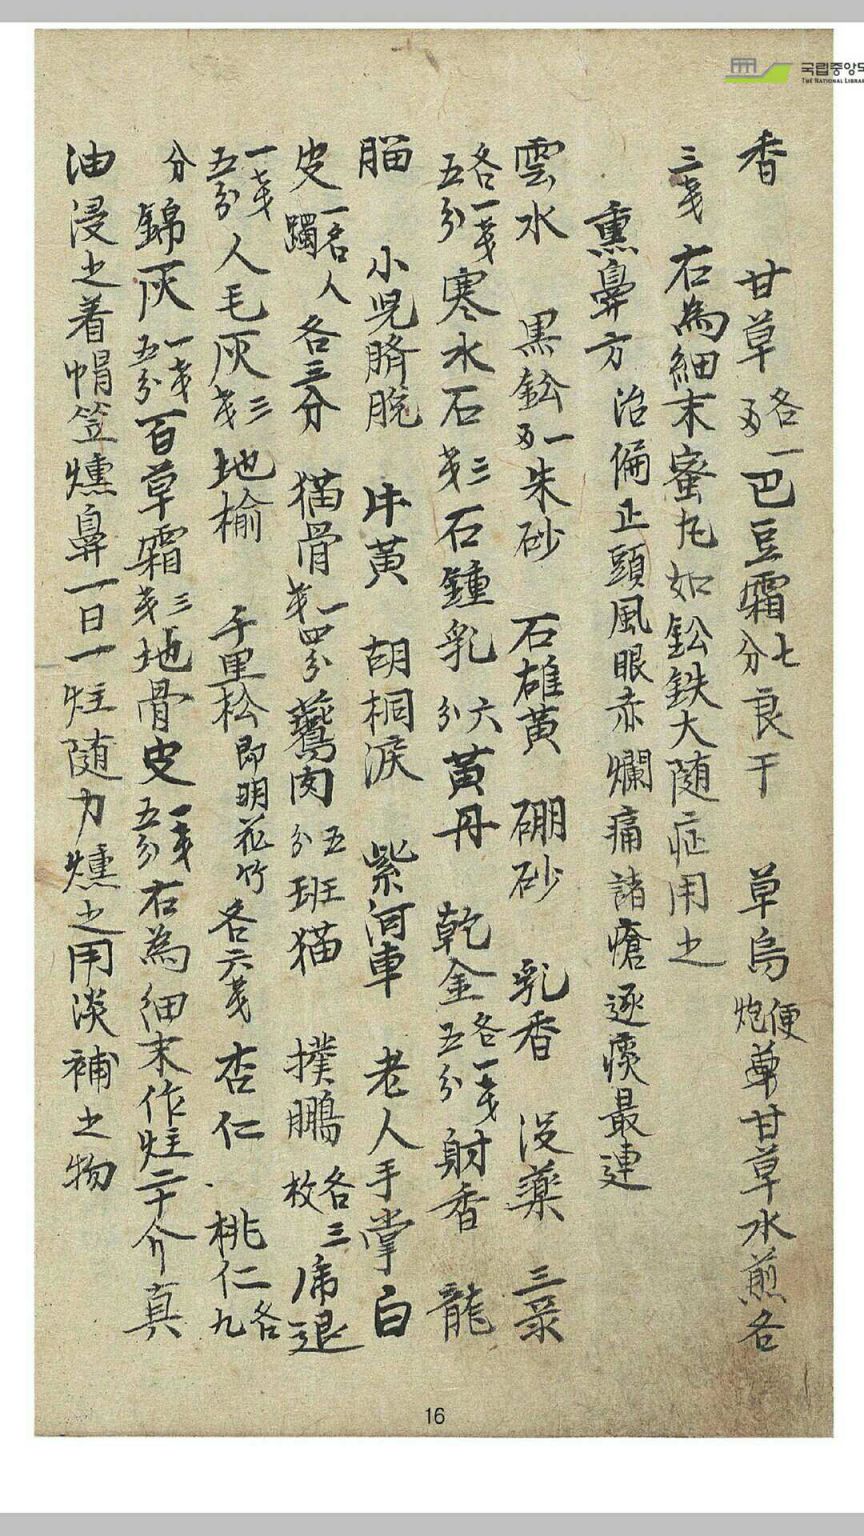 香 甘草 各一両 巴豆霜 七分 良干 草烏 便炮 草甘草水煎各
三戔 右為細末蜜丸如鈆鉄大随症用之
熏鼻方 治偏正頭風眼赤爛痛諸瘡逐痰最連
雲水 黒鈆 一両 朱砂 石雄黄 硼砂 乳香 没薬 三彔
各一戔五分 寒水石 三戔 石鍾乳 六分 黄丹 乾金 各一戔五分 射香 龍
腦 小児臍脫 牛黄 胡桐淚 紫河車 老人手掌白
皮 一名人躅 各三分 猫骨 一戔四分 鷰肉 五分 班猫 撲鵬 各三枚 席退
一戔五分 人毛灰 三戔 地榆 千里松 即明花竹 各六戔 杏仁 桃仁 各九
分 錦灰 一戔五分 百草霜 三戔 地骨皮 一戔五分 右為細末作炷二十介真
油浸之着帽笠燻鼻一日一炷随力燻之用淡補之物
16
국립중앙도
THE NATIONAL LIBRA